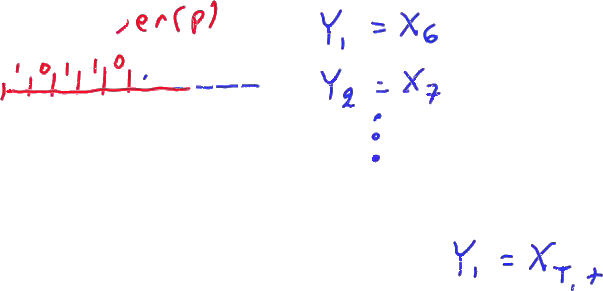 er(p)
1 0 1 1 0
Y₁ = X₆
Y₂ = X₇
Y₁ = X_T₁ +